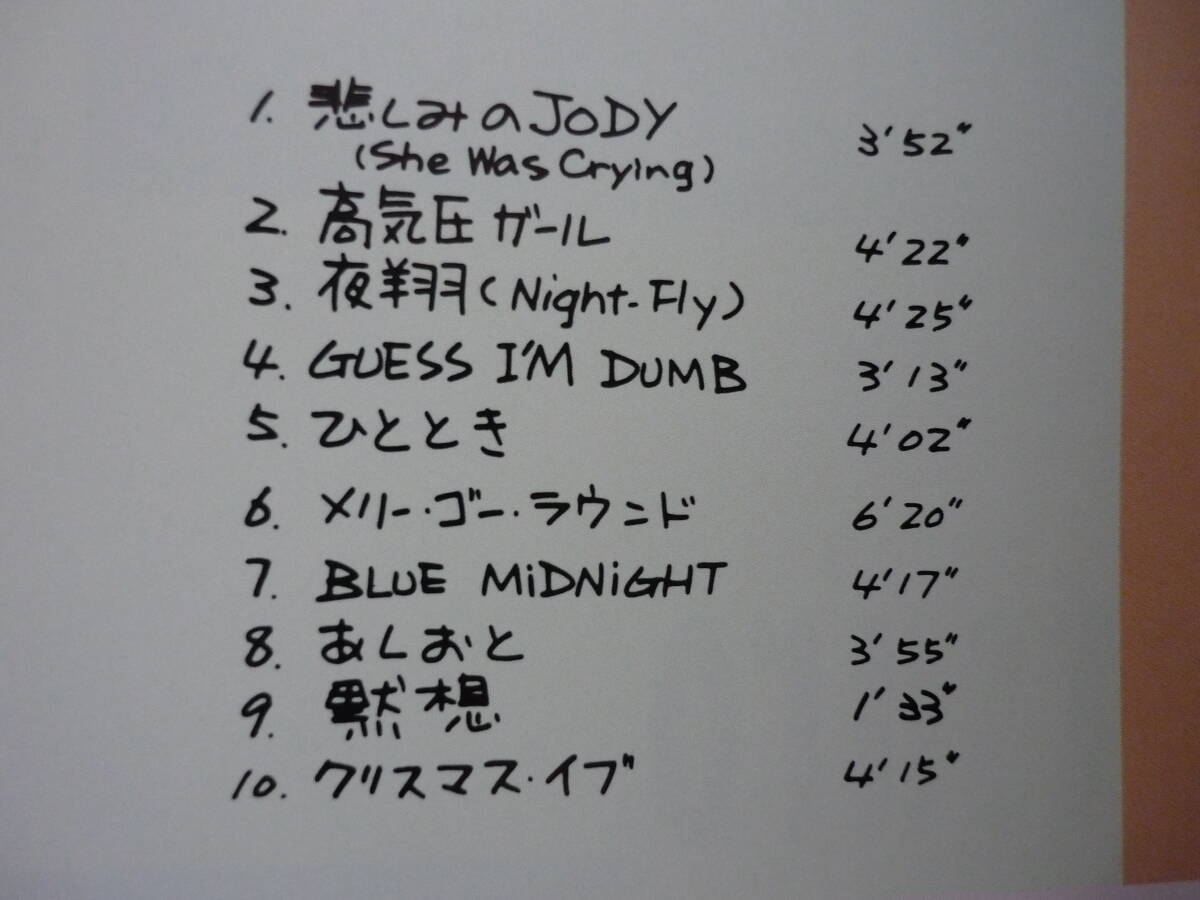 1. 悲しみのJODY 3'52"
(She Was Crying)
2. 高気圧ガール 4'22"
3. 夜翔(Night-Fly) 4'25"
4. GUESS I'M DUMB 3'13"
5. ひととき 4'02"
6. メリー・ゴー・ラウンド 6'20"
7. BLUE MiDNiGHT 4'17"
8. あしおと 3'55"
9. 黙想 1'33"
10. クリスマス・イブ 4'15"